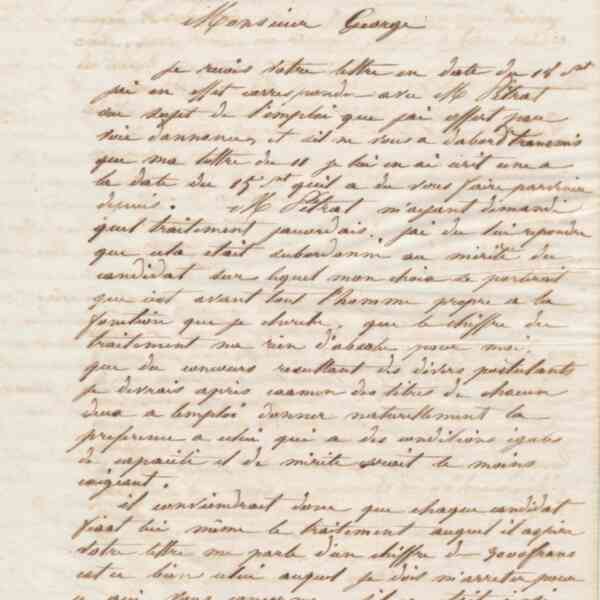 Monsieur George
je recois votre lettre en date du 18 Ct
jai en effet correspondu avec M Pétrat
au sujet de l'emploi que jai offert par
voie dannonces et sil ne vous a dabord transmis
que ma lettre du 11 je lui en ai écrit une a
la date du 15 Ct quil a du vous faire parvenir
depuis. M Pétrat m'ayant demandé
quel traitement jaccordais. jai du lui repondre
que cela était subordonné au mérite du
candidat sur lequel mon choix se porterait
que cest avant tout l'homme propre a la
fonction que je cherche. que le chiffre du
traitement na rien d'absolu pour moi
que du concours resultant des divers postulants
je devrais après examen des titres de chacun
deux a l'emploi donner naturellement la
preference a celui qui a des conditions égales
de capacité et de mérite serait le moins
exigeant.
il conviendrait donc que chaque candidat
fixat lui même le traitement auquel il aspire
votre lettre me parle d'un chiffre de 3000 frans
est ce bien celui auquel je dois m'arreter pour
ce qui vous concerne